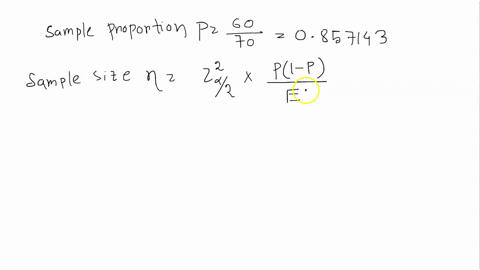 Sample proportion P = 60/70 = 0.857143
Sample size n = Z²α/2 × P(1-P)/E